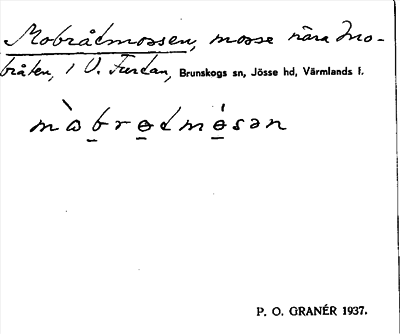 Mobråtmossen, mosse nära Mo-
bråten, i V. Furtan, Brunskogs sn, Jösse hd, Värmlands l.
P. O. GRANÉR 1937.